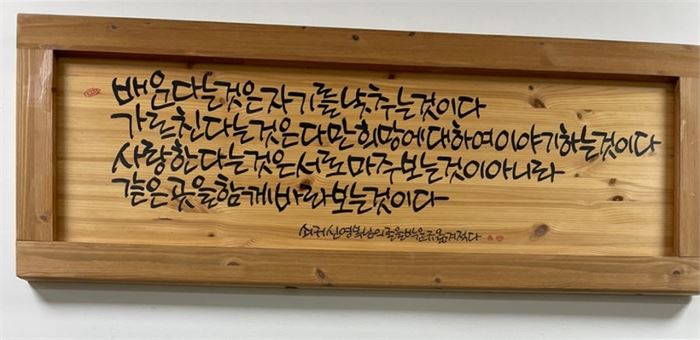 배운다는것은자기를낮추는것이다
가르친다는것은다만희망에대하여이야기하는것이다
사랑한다는것은서로마주보는것이아니라
같은곳을함께바라보는것이다
쇠귀신영복님의글을박운규옮겨적다